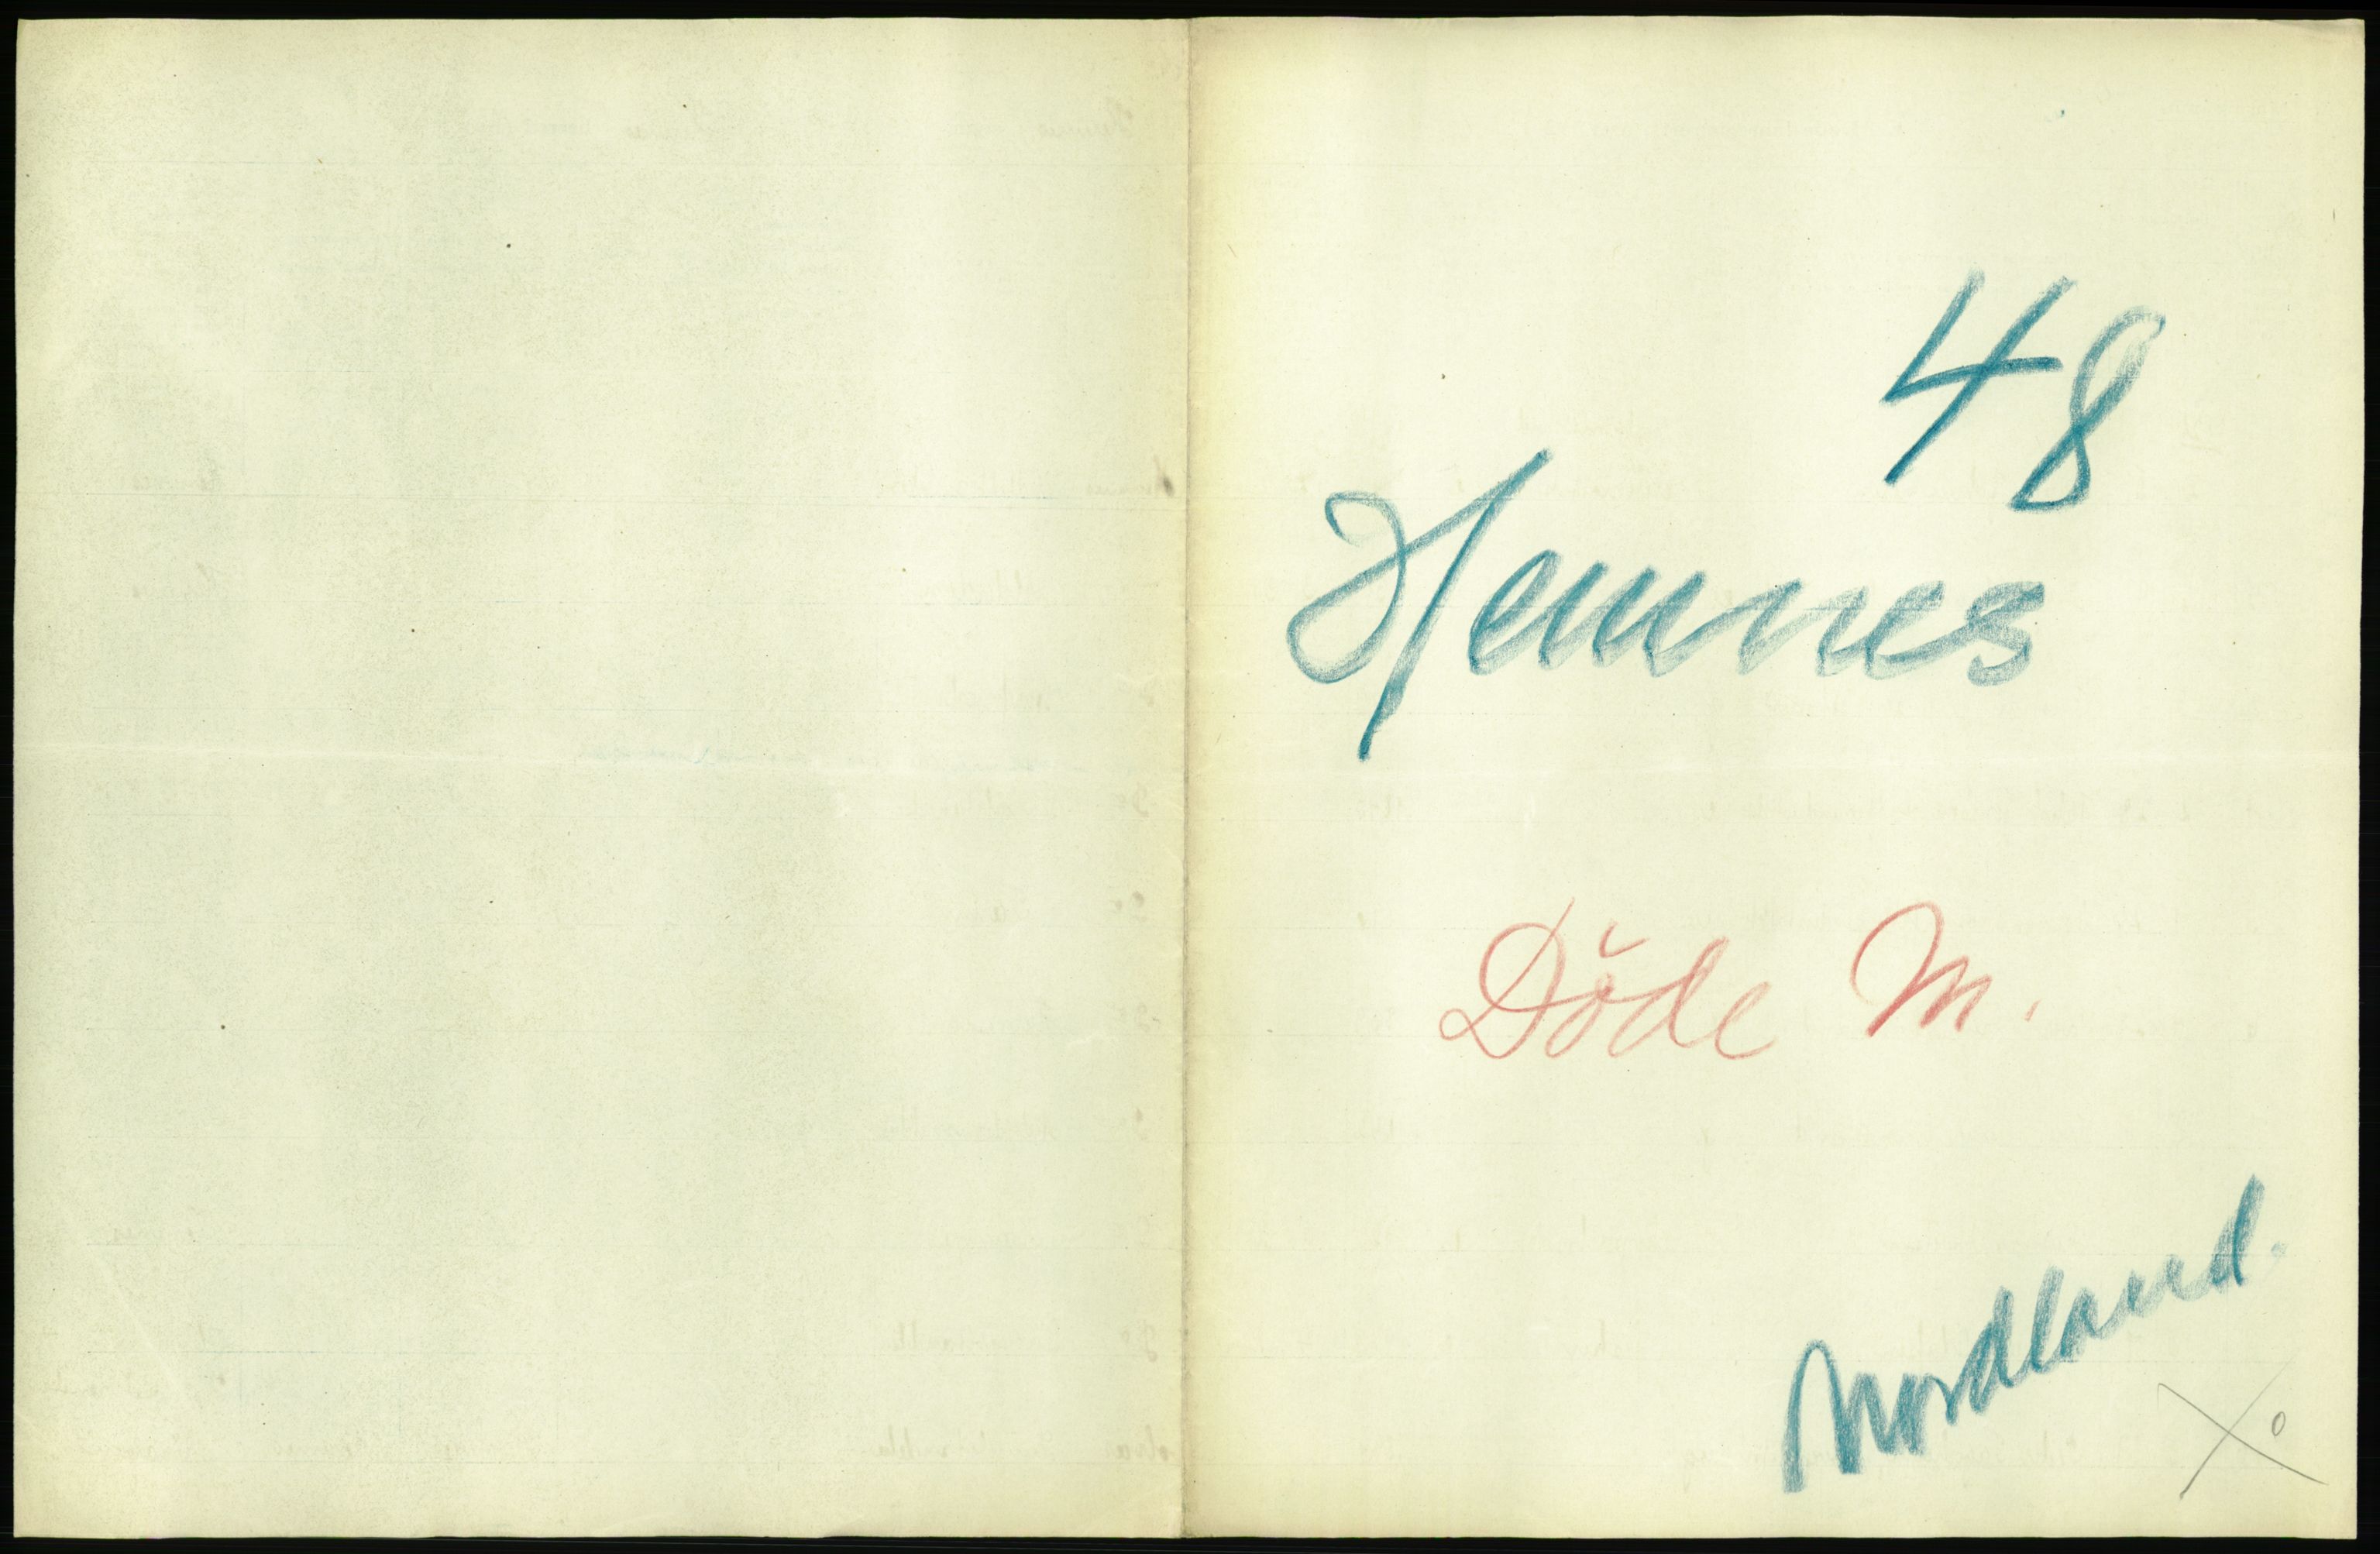 48
Hemnes
Döde M.
Nordland.
X o